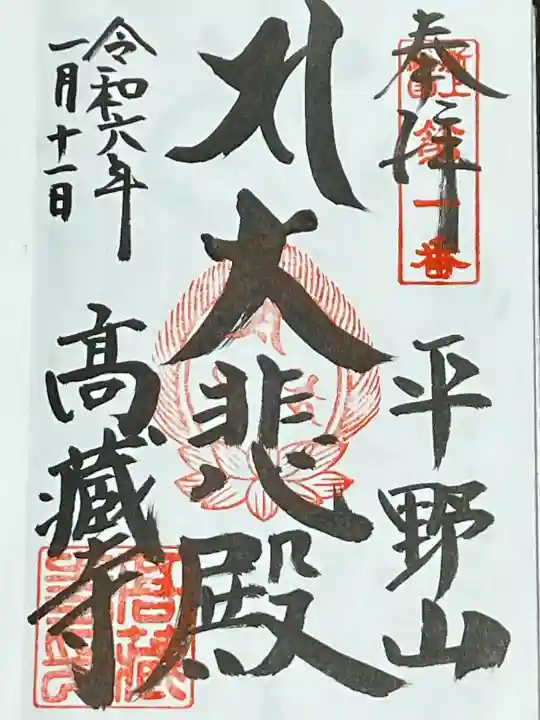 奉拝
第一番
平野山
大悲殿
令和六年
一月十一日
高蔵寺